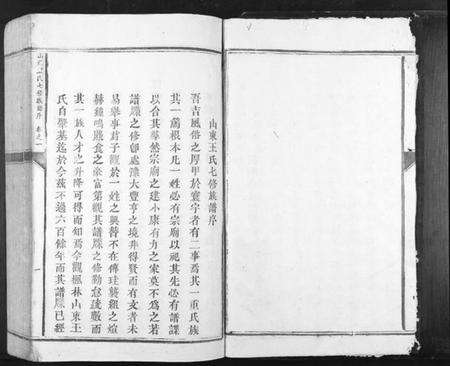 山東王氏七修族譜序
吾吉風俗之厚甲於寰宇者有二事焉其一重氏族
其一篤根本凡一姓必有宗廟以祀其先必有譜諜
以合其羣然宗廟之建小康有力之家莫不為之若
譜牒之修郤處豫大豐亨之境非得賢而有文者未
易舉事君子觀於一姓之興替不在傳珪襲組之煊
赫鐘鳴鼎食之豪富第觀其譜牒之修勤怠疎數而
其一族人才之升降可得而知焉今觀楓林山東王
氏自肇基迄於今茲不過六百餘年而其譜牒已經
山東王氏七修族譜序 卷之一